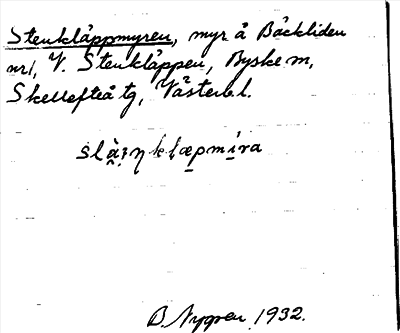 Stenkläppmyren, myr å Bäckliden
nr1, V. Stenkläppen, Byske sn,
Skellefteå tg, Västerb. l.
B. Nygren 1932.